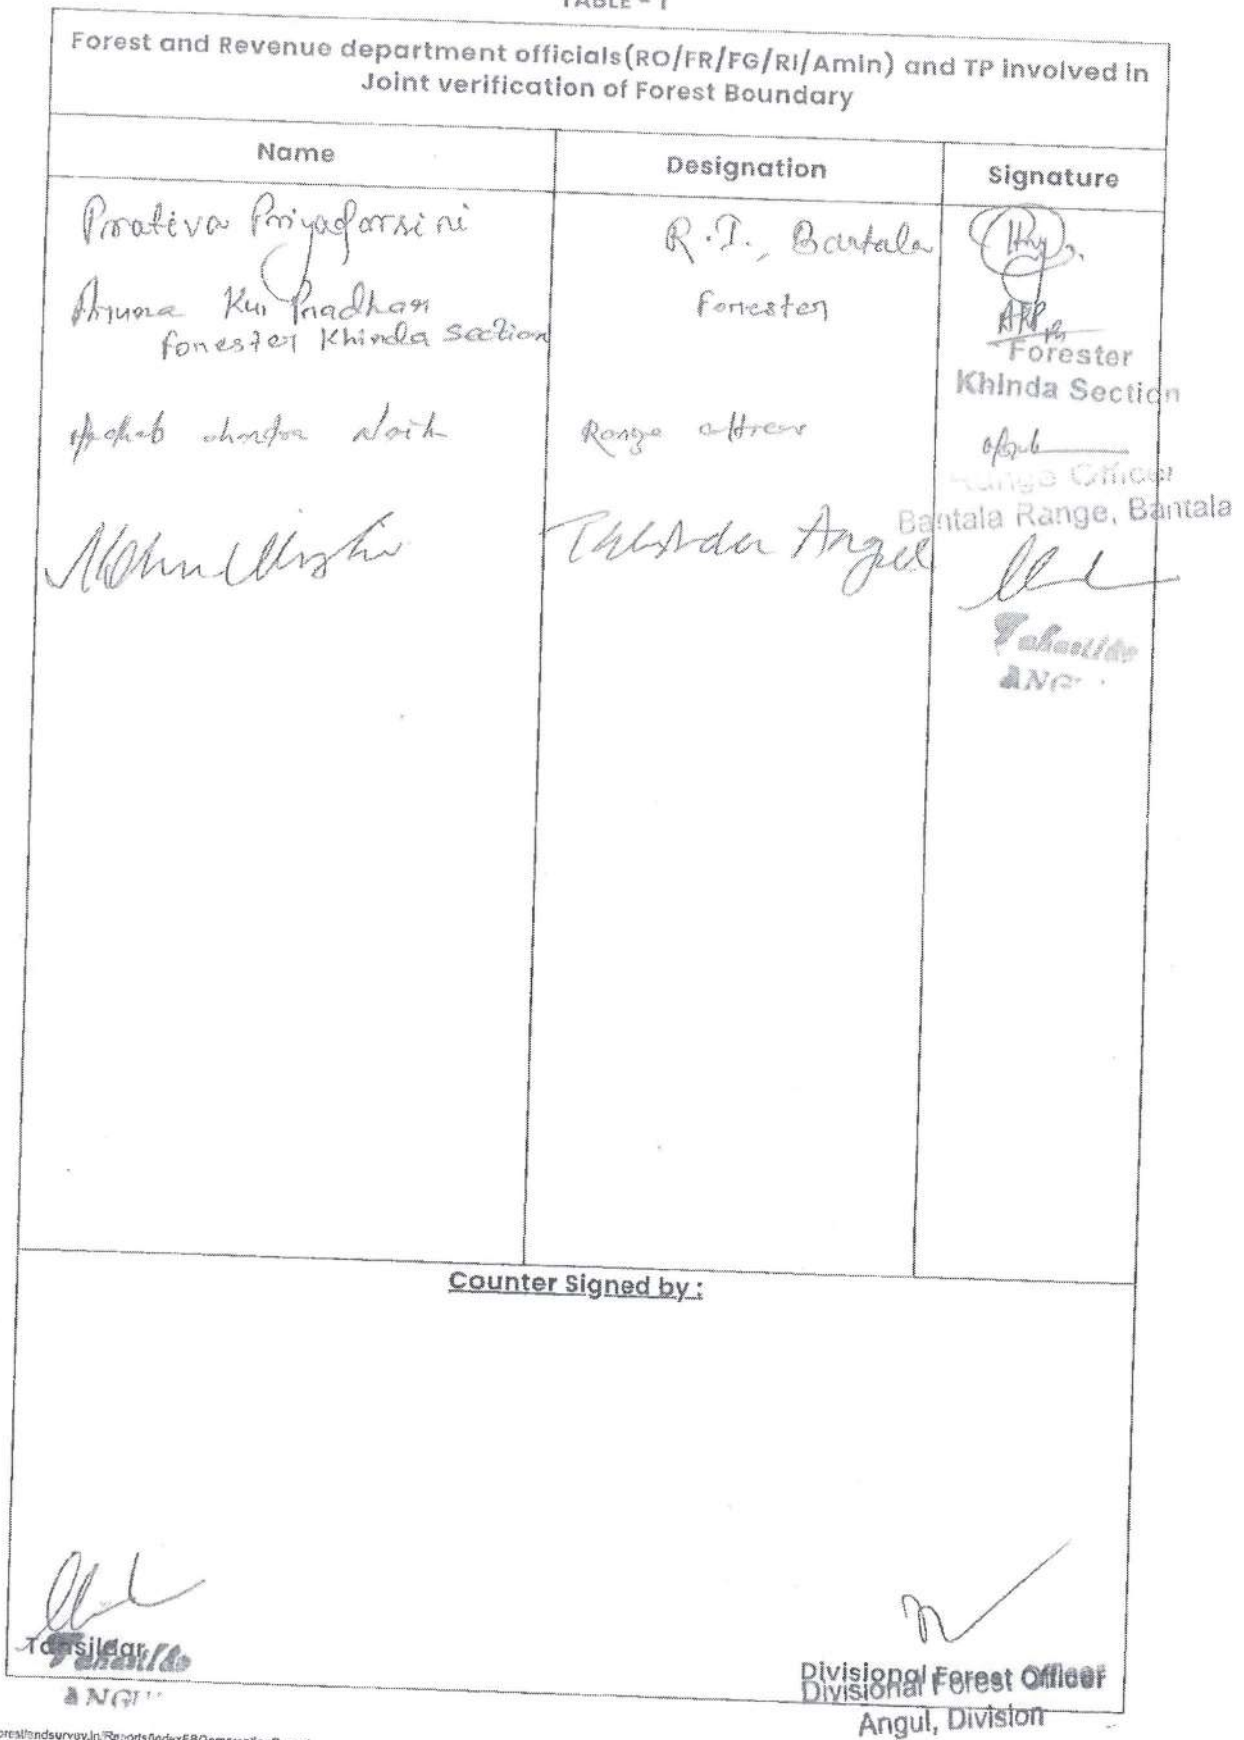 TABLE - 1
Forest and Revenue department officials(RO/FR/FG/RI/Amin) and TP involved in
Joint verification of Forest Boundary
Name Designation Signature
Prativa Priyadarsini R.I., Bantala
Kur Pradhan Forester
Forester Khinda Section
Forester
Khinda Section
Naik Range officer
Range Officer
Bantala Range, Bantala
Tahsildar Angul
Tahasildar
ANG
Counter Signed by :
Tahsildar
Tahasildar
ANGU
Divisional Forest Officer
Divisional Forest Officer
Angul, Division